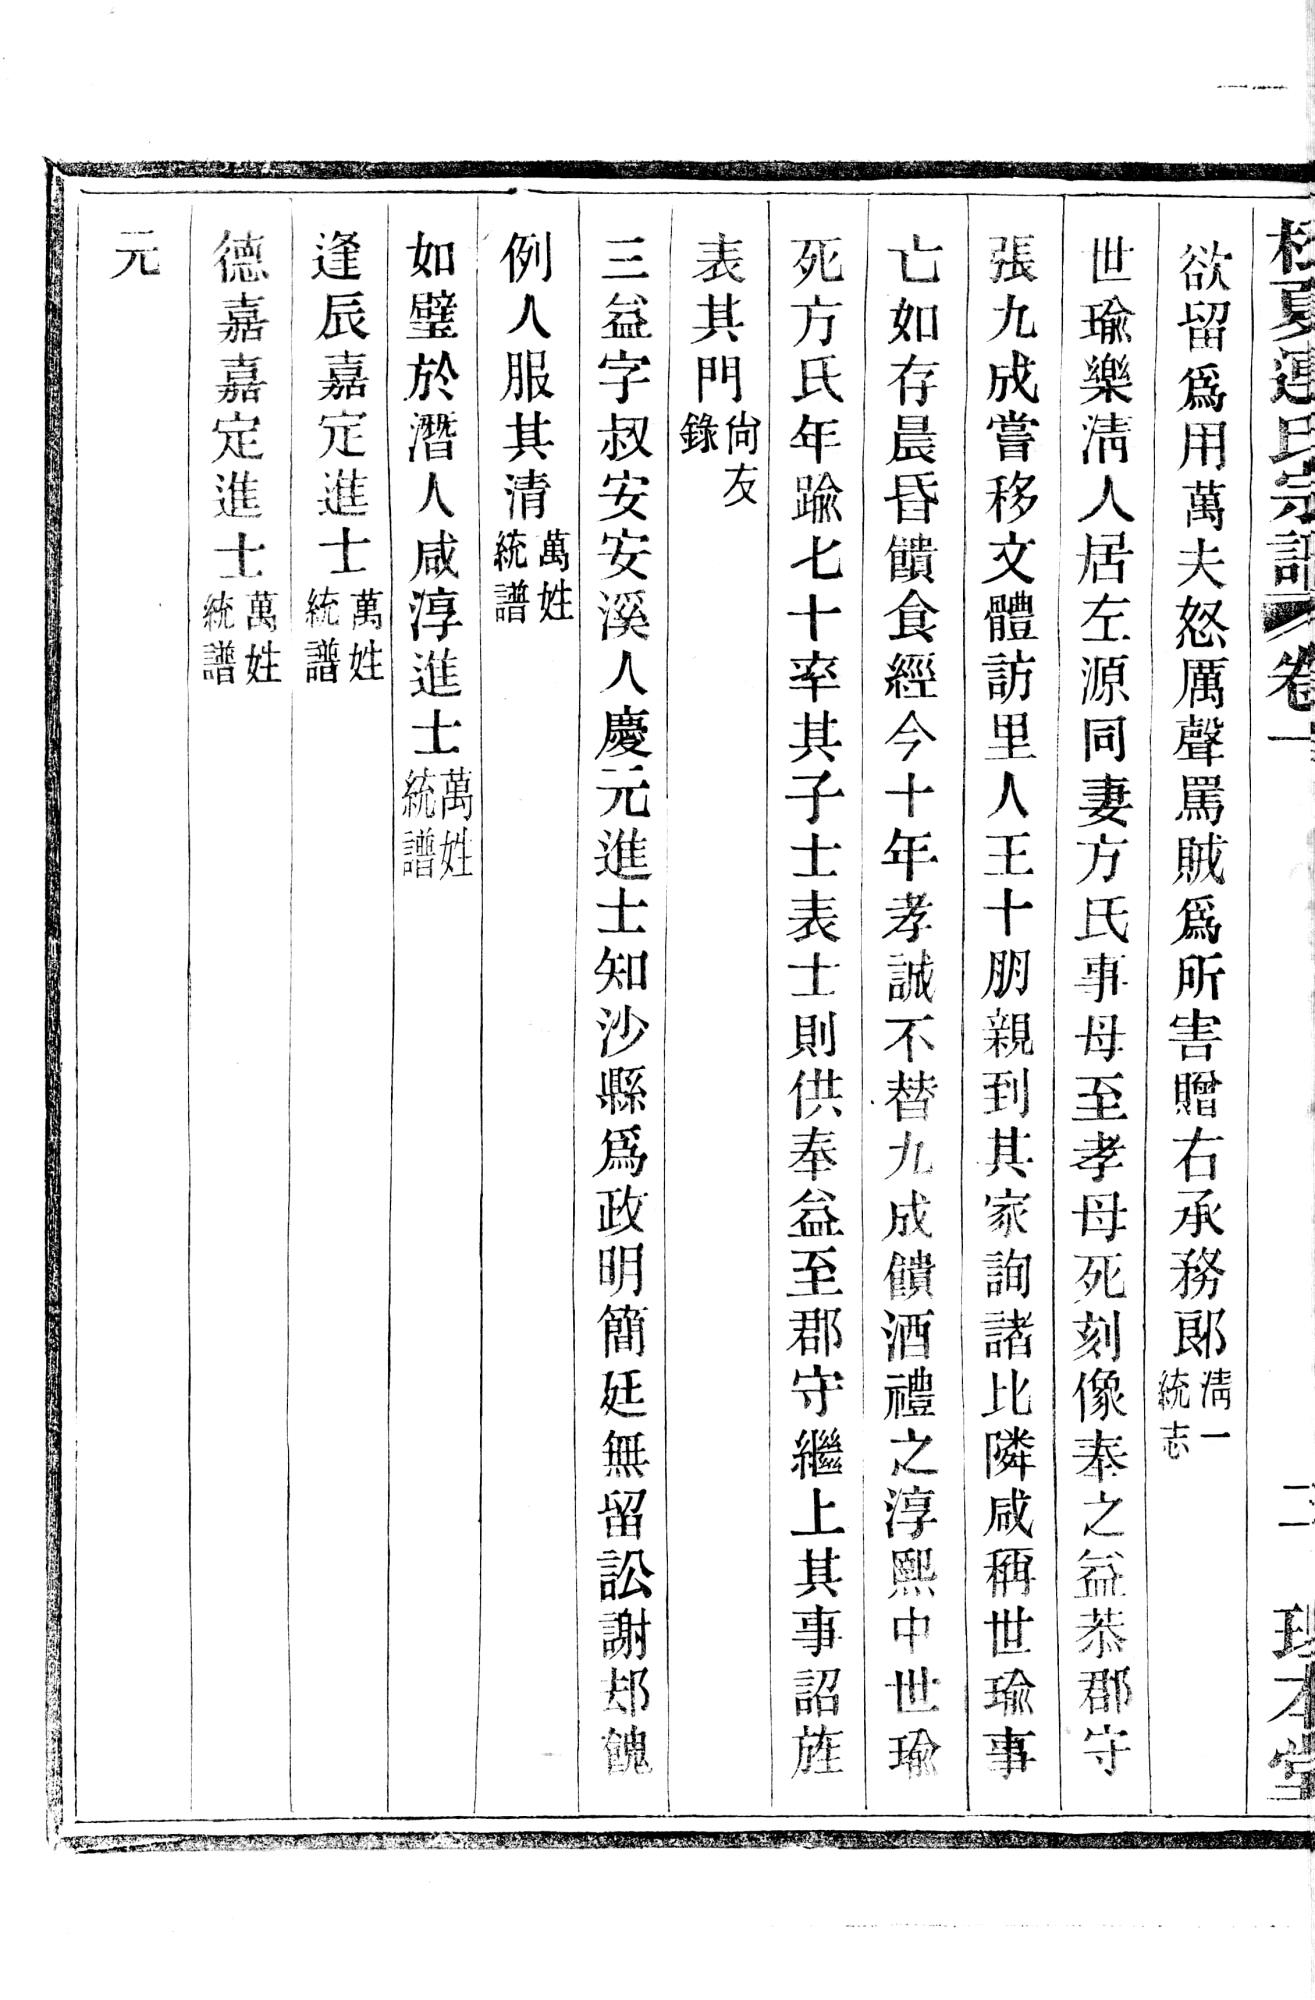 夏連氏宗譜 卷一 二 理本堂
欲留爲用萬夫怒厲聲罵賊爲所害贈右承務郞清一統志
世瑜樂淸人居左源同妻方氏事母至孝母死刻像奉之益恭郡守
張九成嘗移文體訪里人王十朋親到其家詢諸比隣咸稱世瑜事
亡如存晨昏饋食經今十年孝誠不替九成饋酒禮之淳熙中世瑜
死方氏年踰七十率其子士表士則供奉益至郡守繼上其事詔旌
表其門尙友錄
三益字叔安安溪人慶元進士知沙縣爲政明簡廷無留訟謝却餽
例人服其清萬姓統譜
如璧於潛人咸淳進士萬姓統譜
逢辰嘉定進士萬姓統譜
德嘉嘉定進士萬姓統譜
元